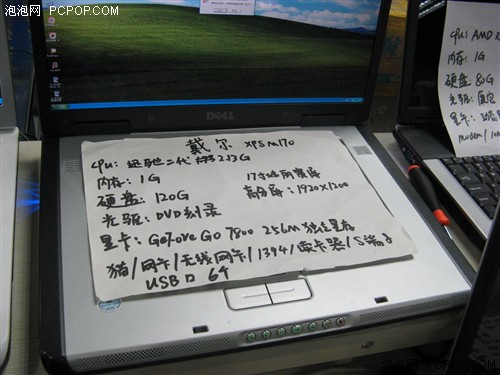 泡泡网 PCPOP.COM
DELL
戴尔 XPS M170
CPU: 迅驰二代 2.13G
内存: 1G
17寸 屏
硬盘: 120G
高分屏: 1920×1200
光驱: DVD刻录
显卡: GeForce Go 7800 256M 独立显存
猫/网卡/无线网卡/1394/读卡器/S端子
USB口 6个
CPU: AMD
内存: 1G
硬盘 80G
光驱:
显卡:
modem/
泡泡网 PCPOP.COM